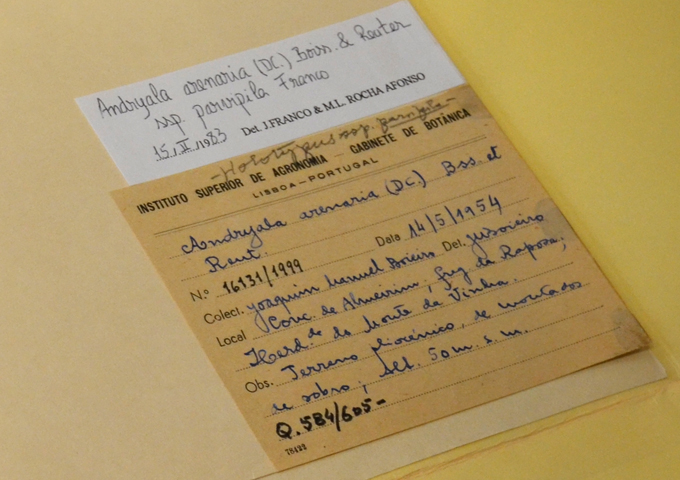 Andryala arenaria (DC.) Boiss. & Reuter
ssp. parvipila Franco
15.II.1983 Det. J. FRANCO & M.L. ROCHA AFONSO
-Holotypus ssp. parvipila-
INSTITUTO SUPERIOR DE AGRONOMIA - GABINETE DE BOTÂNICA
LISBOA-PORTUGAL
Andryala arenaria (DC.) Bss. et
Reut.
N.º 16131/1999 Data 14/5/1954
Colect. Joaquim Manuel Det.
Local Conc. de Almeirim, freg. de Raposa;
Herd.de do Monte da Vinha.
Obs. Terreno pliocénico, de montados
de sobro; alt. 50 m. s. m.
Q.584/605-